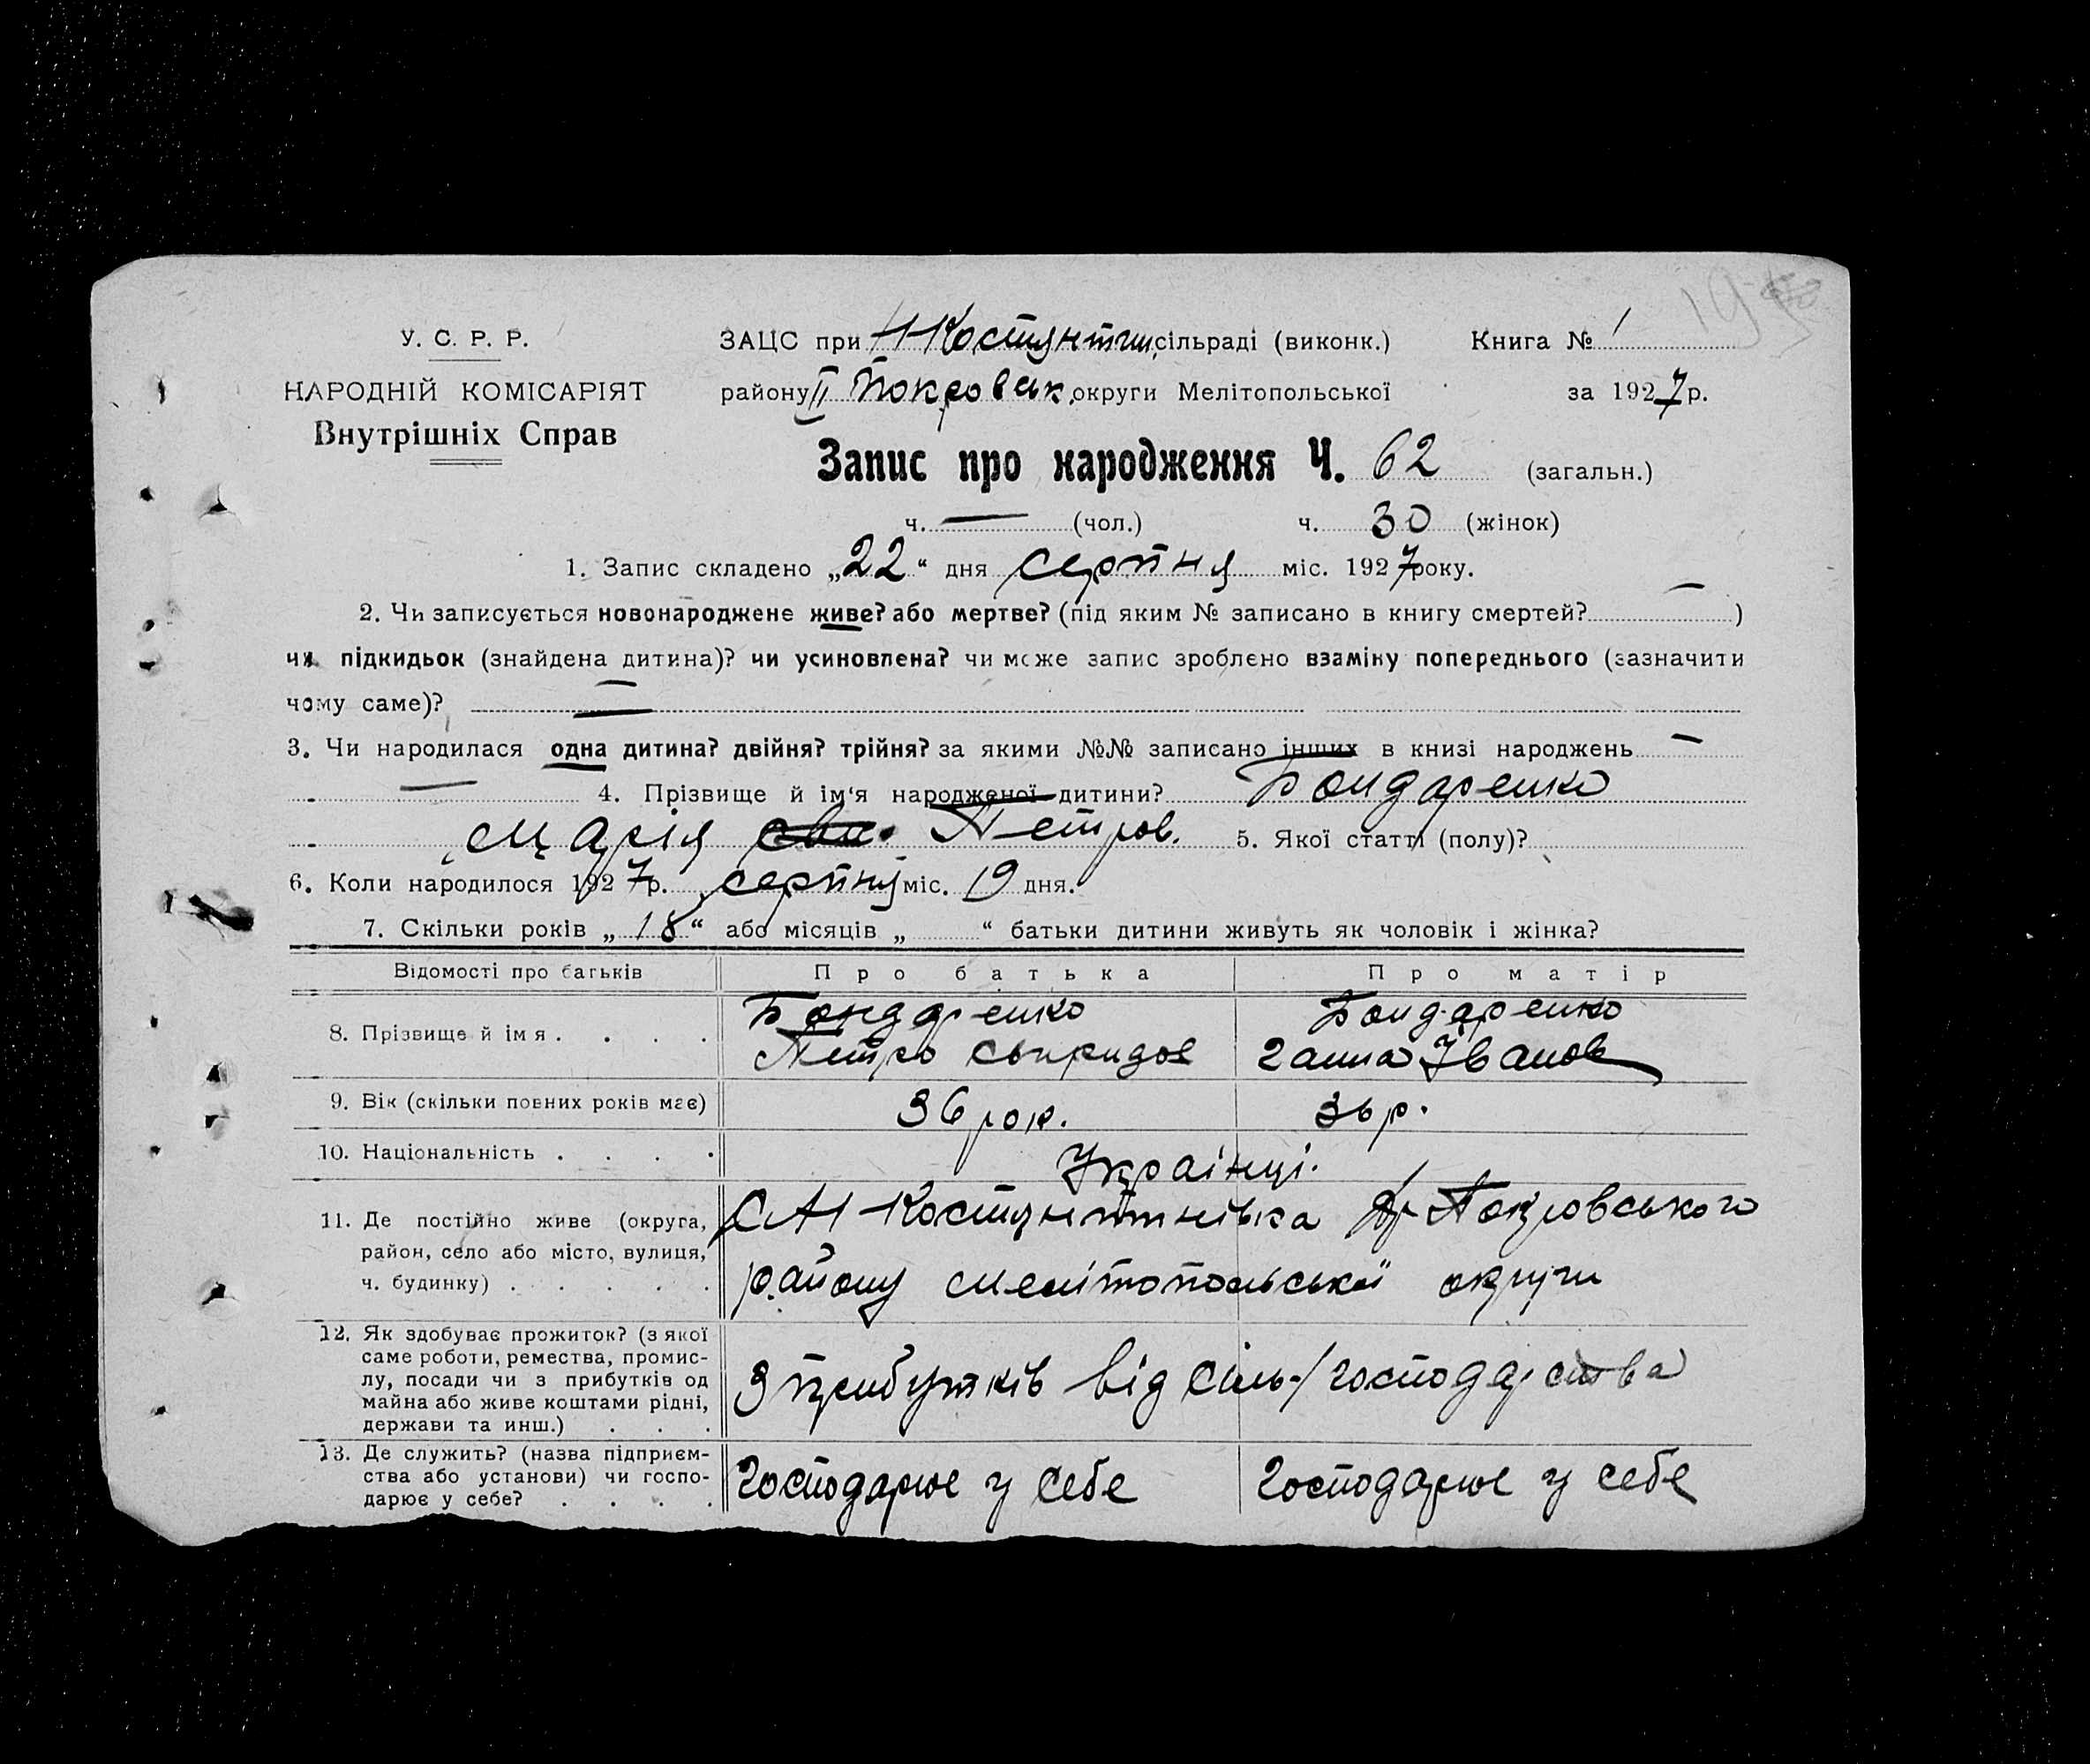 У. С. Р. Р.
НАРОДНІЙ КОМІСАРІЯТ
Внутрішніх Справ
ЗАЦС при Н Костянтин. сільраді (виконк.) Книга № 1
району II Покровськ. округи Мелітопольської за 1927 р.
Запис про народження Ч. 62 (загальн.)
ч. — (чол.) ч. 30 (жінок)
1. Запис складено „22“ дня серпня міс. 1927 року.
2. Чи записується новонароджене живе? або мертве? (під яким № записано в книгу смертей? — )
чи підкидьок (знайдена дитина)? чи усиновлена? чи може запис зроблено взаміну попереднього (зазначити
чому саме)? —
3. Чи народилася одна дитина? двійня? трійня? за якими №№ записано інших в книзі народжень —
— 4. Прізвище й ім‘я народженої дитини? Бондаренко
Марія Петров. 5. Якої статті (полу)?
6. Коли народилося 1927 р. серпня міс. 19 дня.
7. Скільки років „18“ або місяців „ “ батьки дитини живуть як чоловік і жінка?
Відомості про батьків Про батька Про матір
8. Прізвище й імя . . . . Бондаренко Бондаренко
Петро Спиридов Ганна Іванов
9. Вік (скільки повних років має) 36 рок. 36 р.
10. Національність . . . . Українці.
11. Де постійно живе (округа, район, село або місто, вулиця, ч. будинку) . . . . .
Костянтинівка Покровського
району Мелітопольської округи
12. Як здобуває прожиток? (з якої саме роботи, ремества, промис-
лу, посади чи з прибутків од
майна або живе коштами рідні,
держави та инш.) . . .
З прибутків від сіль-/господарства
13. Де служить? (назва підприєм-
ства або установи) чи госпо-
дарює у себе? . . . .
господарює у себе господарює у себе